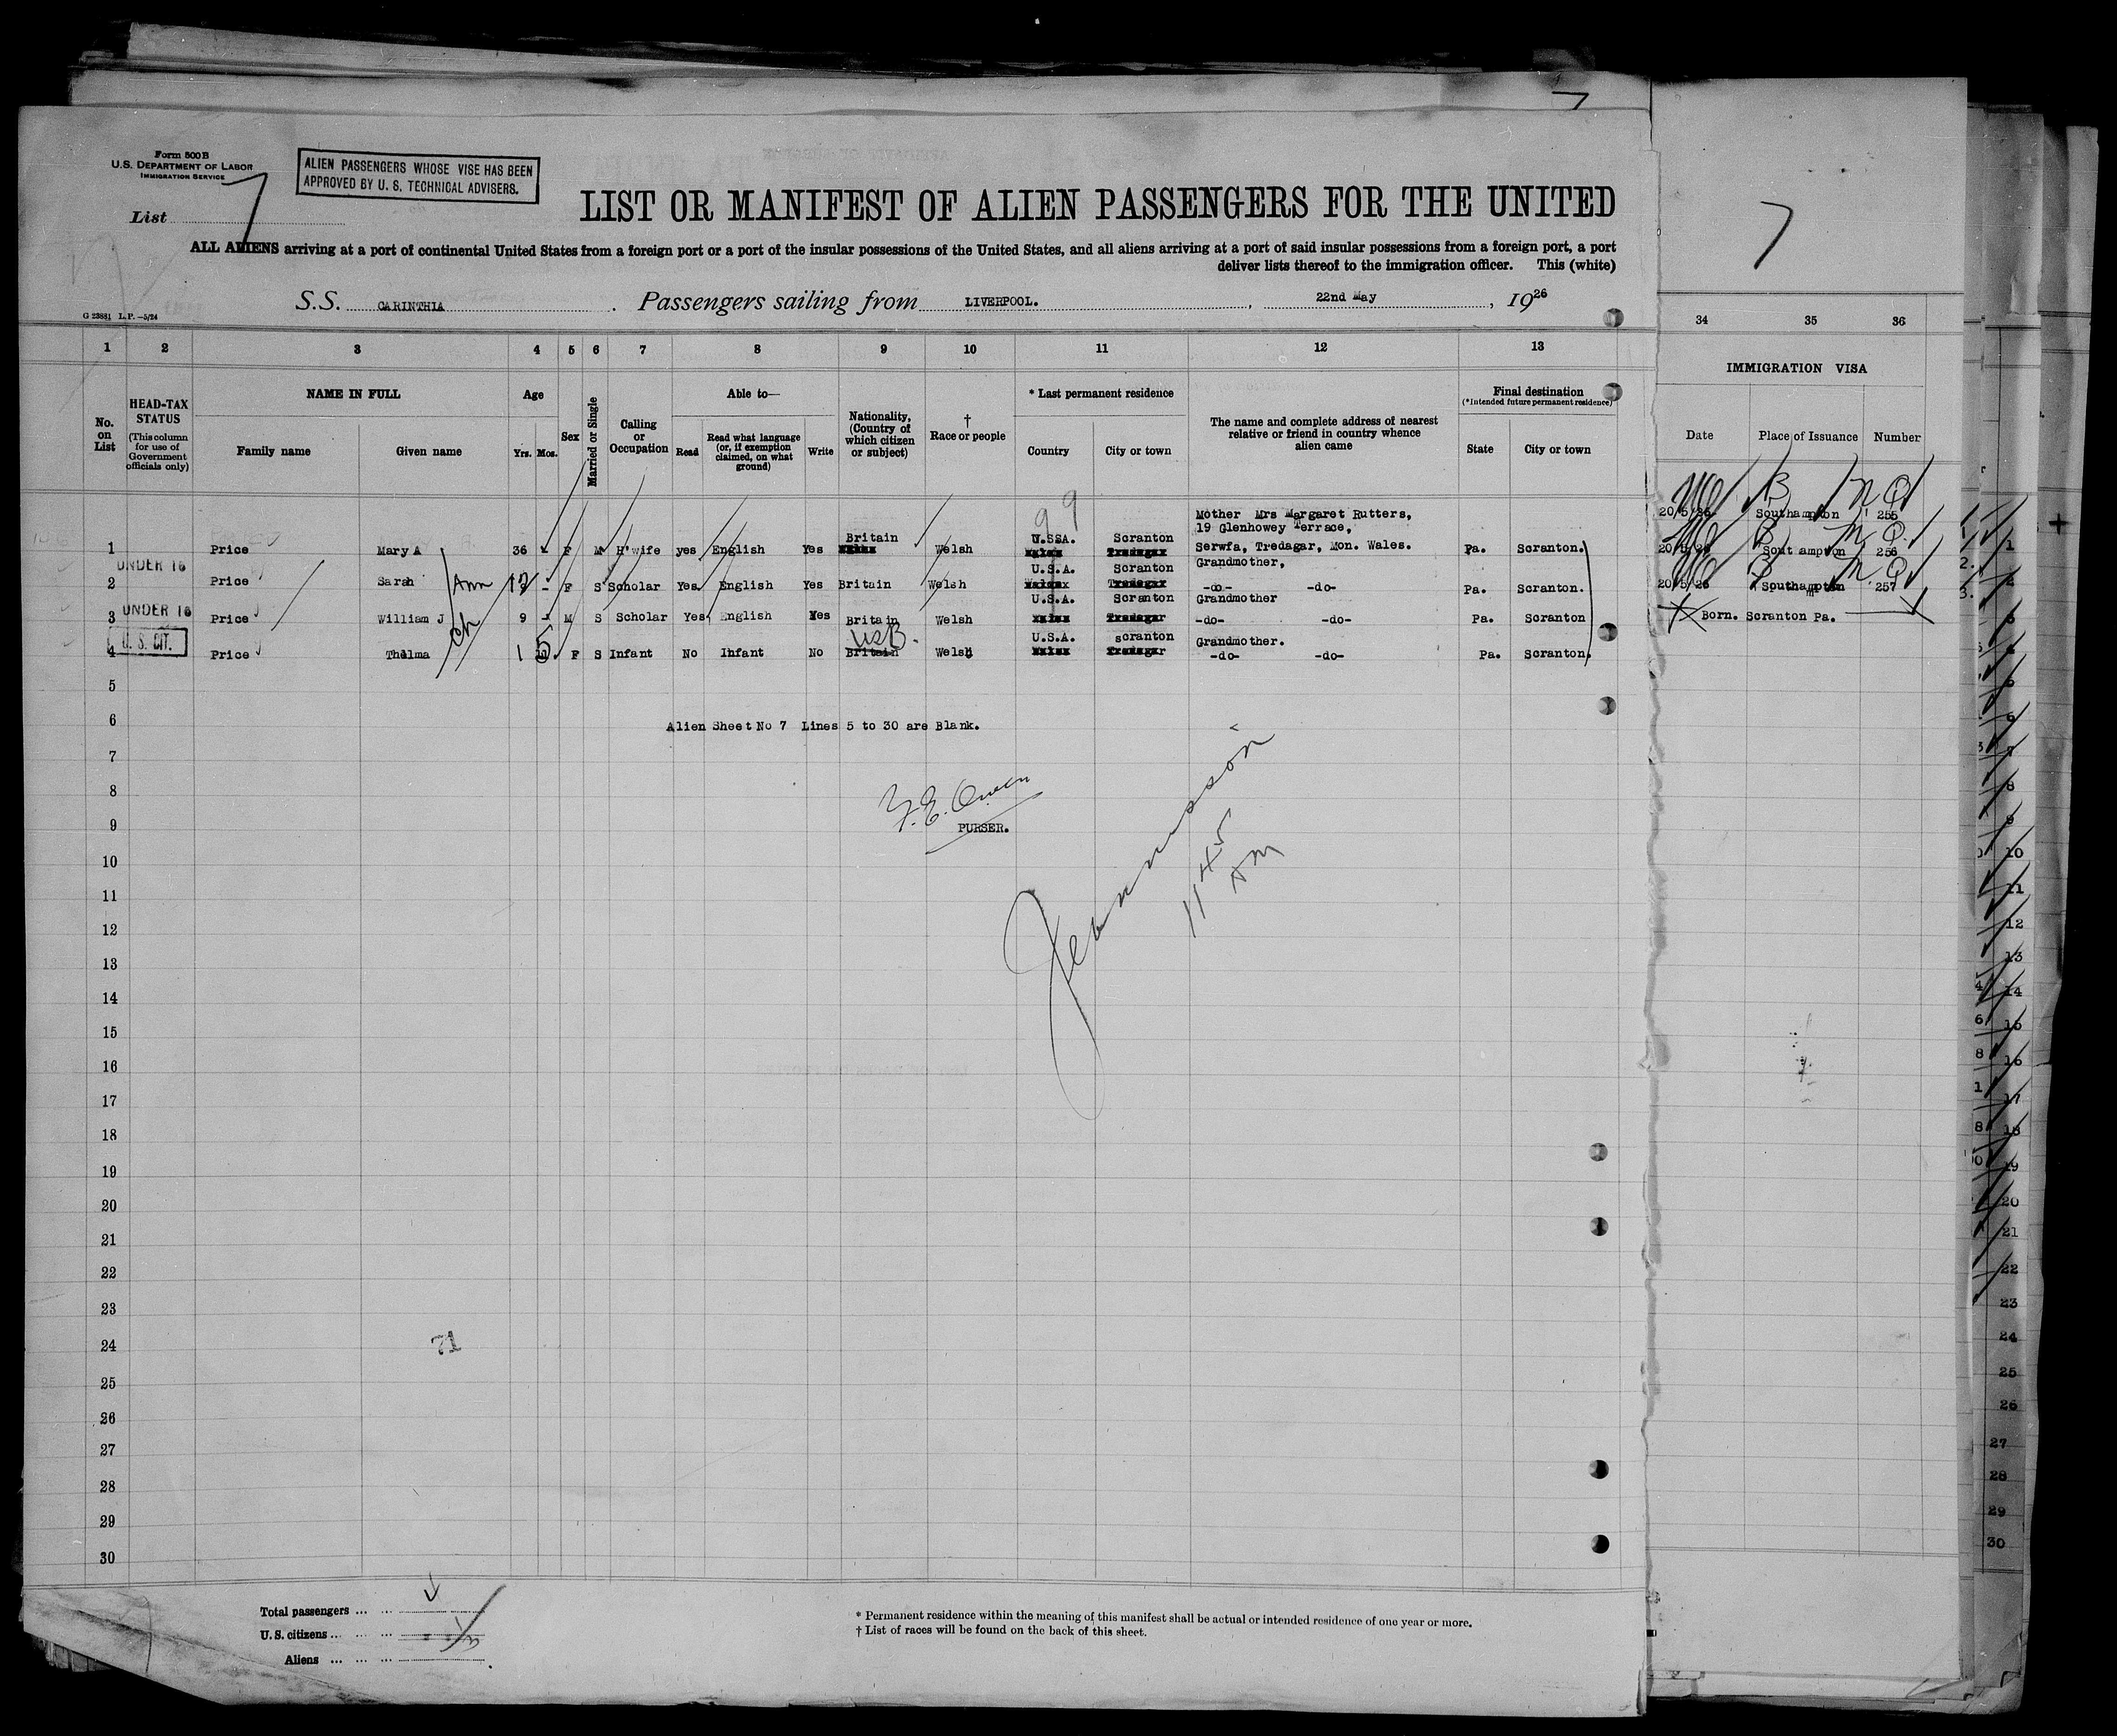 Form 500 B
U.S. DEPARTMENT OF LABOR
IMMIGRATION SERVICE
ALIEN PASSENGERS WHOSE VISE HAS BEEN
APPROVED BY U. S. TECHNICAL ADVISERS.
List 7
7
LIST OR MANIFEST OF ALIEN PASSENGERS FOR THE UNITED
ALL ALIENS arriving at a port of continental United States from a foreign port or a port of the insular possessions of the United States, and all aliens arriving at a port of said insular possessions from a foreign port, a port
deliver lists thereof to the immigration officer. This (white)
S.S. CARINTHIA. Passengers sailing from LIVERPOOL. , 22nd May , 1926
G 23881 L.P.—5/24
1 2 3 4 5 6 7 8 9 10 11 12 13 34 35 36
No. on List
HEAD-TAX STATUS
(This column for use of Government officials only)
NAME IN FULL
Family name Given name
Age
Yrs. Mos.
Sex
Married or Single
Calling or Occupation
Able to—
Read
Read what language (or, if exemption claimed, on what ground)
Write
Nationality, (Country of which citizen or subject)
† Race or people
* Last permanent residence
Country City or town
The name and complete address of nearest relative or friend in country whence alien came
Final destination
(*Intended future permanent residence)
State City or town
IMMIGRATION VISA
Date Place of Issuance Number
Mother Mrs Margaret Rutters,
19 Glenhowey Terrace,
1 Price Mary A 36 - F M H'wife yes English Yes Britain Welsh U.SSA. Scranton Serwfa, Tredagar, Mon. Wales. Pa. Scranton. 20/5/26 Southampton 255
UNDER 16
Grandmother,
2 Price Sarah Ann 12 - F S Scholar Yes English Yes Britain Welsh U.S.A. Scranton -do- -do- Pa. Scranton. 20/5/26 Sout ampton 256
UNDER 16
Grandmother
3 Price William J 9 - M S Scholar Yes English Yes Britain Welsh U.S.A. Scranton -do- -do- Pa. Scranton 20/5/26 Southampton 257
U. S. CIT.
USB.
Grandmother.
4 Price Thelma 1 5 F S Infant No Infant No Britain Welsh U.S.A. scranton -do- -do- Pa. Scranton. Born. Scranton Pa.
5
6 Alien Sheet No 7 Lines 5 to 30 are Blank.
7
8
F. E. Owen
9 PURSER.
10
11
1145
AM
12
13
14
15
16
17
18
19
20
21
22
23
24
71
25
26
27
28
29
30
Total passengers ... ...
U.S. citizens ... ... ...
Aliens ... ... ...
* Permanent residence within the meaning of this manifest shall be actual or intended residence of one year or more.
† List of races will be found on the back of this sheet.